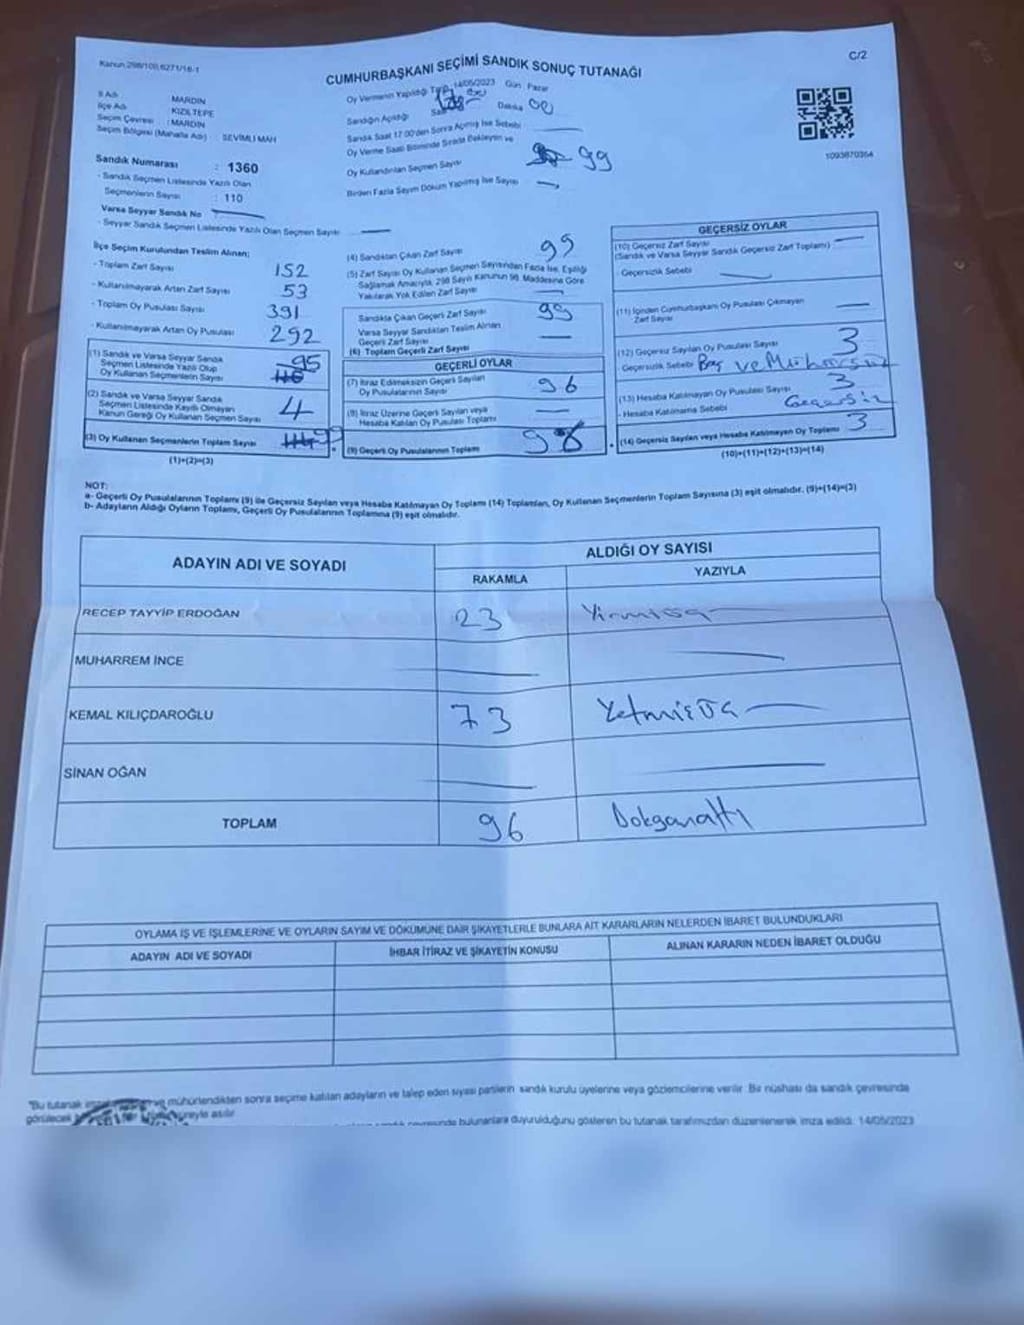 Kanun:298/100,6271/16-1
C/2
CUMHURBAŞKANI SEÇİMİ SANDIK SONUÇ TUTANAĞI
İl Adı : MARDİN
İlçe Adı : KIZILTEPE
Seçim Çevresi : MARDİN
Seçim Bölgesi (Mahalle Adı) : SEVİMLİ MAH
Sandık Numarası : 1360
- Sandık Seçmen Listesinde Yazılı Olan
Seçmenlerin Sayısı : 110
Varsa Seyyar Sandık No
- Seyyar Sandık Seçmen Listesinde Yazılı Olan Seçmen Sayısı
Oy Vermenin Yapıldığı Tarih 14/05/2023 Gün Pazar
Sandığın Açıldığı Saat Dakika 00
Sandık Saat 17:00'den Sonra Açılmış İse Sebebi
Oy Verme Saati Bitiminde Sırada Bekleyen ve
Oy Kullandırılan Seçmen Sayısı 99
Birden Fazla Sayım Döküm Yapılmış İse Sayısı
1093870364
İlçe Seçim Kurulundan Teslim Alınan;
- Toplam Zarf Sayısı 152
- Kullanılmayarak Artan Zarf Sayısı 53
- Toplam Oy Pusulası Sayısı 391
- Kullanılmayarak Artan Oy Pusulası 292
(1) Sandık ve Varsa Seyyar Sandık
Seçmen Listesinde Yazılı Olup
Oy Kullanan Seçmenlerin Sayısı 95
(2) Sandık ve Varsa Seyyar Sandık
Seçmen Listesinde Kayıtlı Olmayan
Kanun Gereği Oy Kullanan Seçmen Sayısı 4
(3) Oy Kullanan Seçmenlerin Toplam Sayısı
(1)+(2)=(3)
(4) Sandıktan Çıkan Zarf Sayısı 99
(5) Zarf Sayısı Oy Kullanan Seçmen Sayısından Fazla İse, Eşitliği
Sağlamak Amacıyla, 298 Sayılı Kanunun 98. Maddesine Göre
Yakılarak Yok Edilen Zarf Sayısı
Sandıkta Çıkan Geçerli Zarf Sayısı 99
Varsa Seyyar Sandıktan Teslim Alınan
Geçerli Zarf Sayısı
(6) Toplam Geçerli Zarf Sayısı
GEÇERLİ OYLAR
(7) İtiraz Edilmeksizin Geçerli Sayılan
Oy Pusulalarının Sayısı 96
(8) İtiraz Üzerine Geçerli Sayılan veya
Hesaba Katılan Oy Pusulası Toplamı
(9) Geçerli Oy Pusulalarının Toplamı 96
GEÇERSİZ OYLAR
(10) Geçersiz Zarf Sayısı
(Sandık ve Varsa Seyyar Sandık Geçersiz Zarf Toplamı)
- Geçersizlik Sebebi
(11) İçinden Cumhurbaşkanı Oy Pusulası Çıkmayan
Zarf Sayısı
(12) Geçersiz Sayılan Oy Pusulası Sayısı 3
Geçersizlik Sebebi Boş ve Mühürsüz
(13) Hesaba Katılmayan Oy Pusulası Sayısı 3
- Hesaba Katılmama Sebebi Geçersiz
(14) Geçersiz Sayılan veya Hesaba Katılmayan Oy Toplamı 3
(10)+(11)+(12)+(13)=(14)
NOT:
a- Geçerli Oy Pusulalarının Toplamı (9) ile Geçersiz Sayılan veya Hesaba Katılmayan Oy Toplamı (14) Toplamları, Oy Kullanan Seçmenlerin Toplam Sayısına (3) eşit olmalıdır. (9)+(14)=(3)
b- Adayların Aldığı Oyların Toplamı, Geçerli Oy Pusulalarının Toplamına (9) eşit olmalıdır.
ADAYIN ADI VE SOYADI
ALDIĞI OY SAYISI
RAKAMLA YAZIYLA
RECEP TAYYİP ERDOĞAN 23 Yirmiüç
MUHARREM İNCE
KEMAL KILIÇDAROĞLU 73 Yetmişüç
SİNAN OĞAN
TOPLAM 96 Doksanaltı
OYLAMA İŞ VE İŞLEMLERİNE VE OYLARIN SAYIM VE DÖKÜMÜNE DAİR ŞİKAYETLERLE BUNLARA AİT KARARLARIN NELERDEN İBARET BULUNDUKLARI
ADAYIN ADI VE SOYADI İHBAR İTİRAZ VE ŞİKAYETİN KONUSU ALINAN KARARIN NEDEN İBARET OLDUĞU
"Bu tutanak ve mühürlendikten sonra seçime katılan adayların ve talep eden siyasi partilerin sandık kurulu üyelerine veya gözlemcilerine verilir. Bir nüshası da sandık çevresinde
görülecek süreyle asılır
bulunanlara duyurulduğunu gösteren bu tutanak tarafımızdan düzenlenerek imza edildi. 14/05/2023